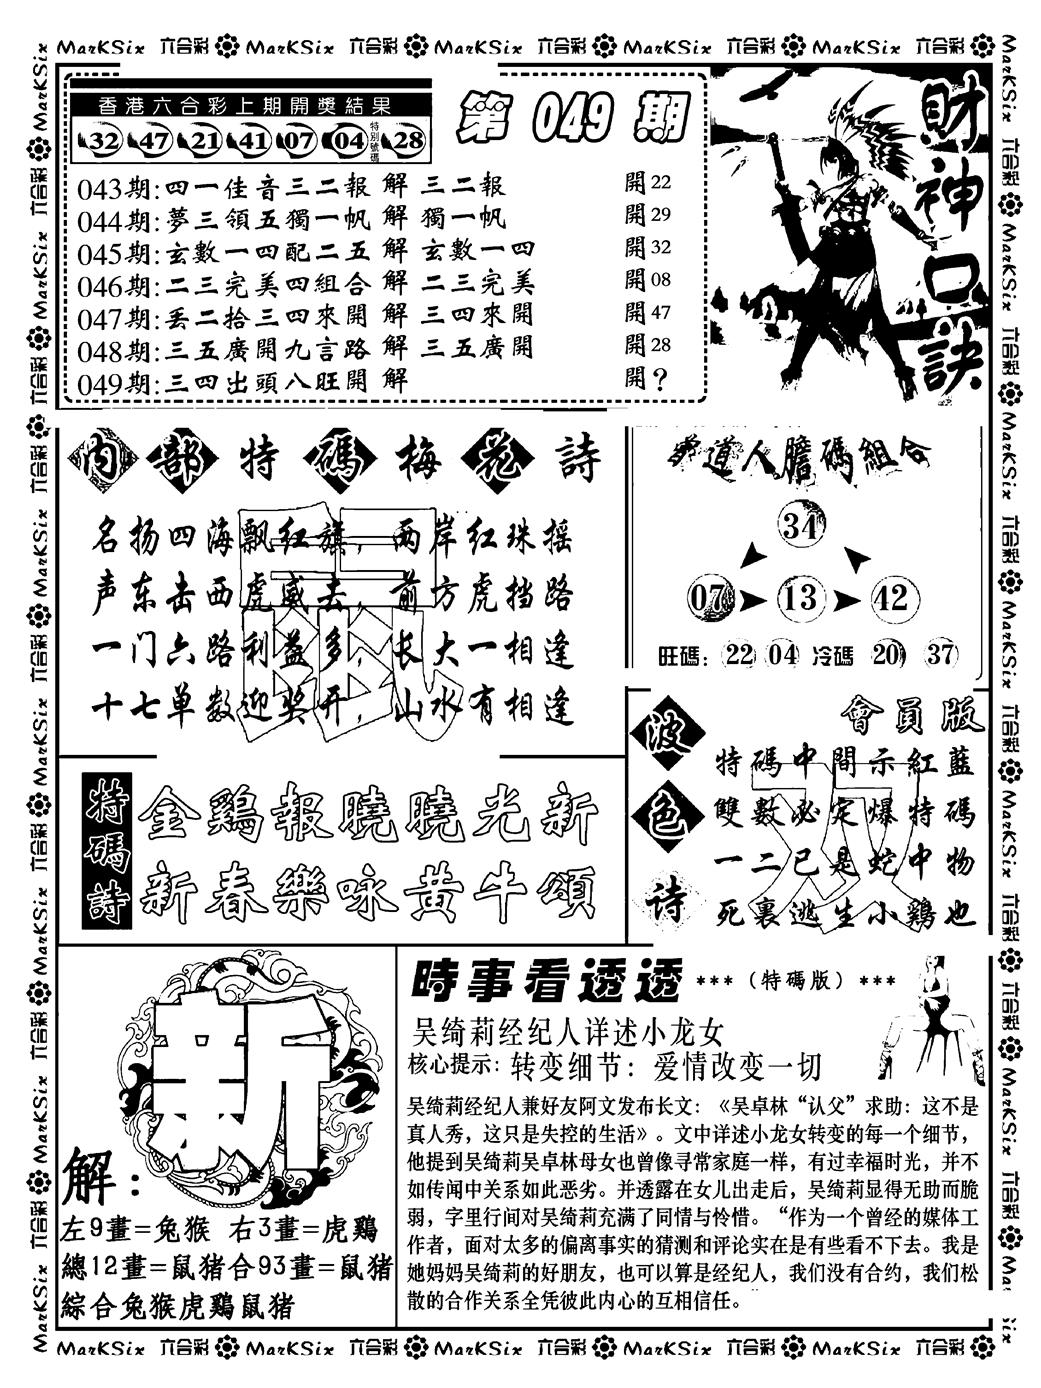 MarKSix 六合彩 MarKSix 六合彩 MarKSix 六合彩 MarKSix 六合彩 MarKSix 六合彩
香港六合彩上期開獎結果
32 47 21 41 07 04 特別號碼 28
第 049 期
財神口訣
043期:四一佳音三二報 解 三二報 開22
044期:夢三領五獨一帆 解 獨一帆 開29
045期:玄數一四配二五 解 玄數一四 開32
046期:二三完美四組合 解 二三完美 開08
047期:丢二拾三四來開 解 三四來開 開47
048期:三五廣開九言路 解 三五廣開 開28
049期:三四出頭八旺開 解 開?
內部特碼梅花詩
名扬四海飘红旗，两岸红珠摇
声东击西虎威去，前方虎挡路
一门六路利益多，长大一相逢
十七单数迎奖开，山水有相逢
道人膽碼組合
34
07 13 42
旺碼: 22 04 冷碼 20 37
波色诗
會員版
特碼中間示紅藍
雙數必定爆特碼
一二已是蛇中物
死裏逃生小鷄也
特碼詩
金鷄報曉曉光新
新春樂咏黄牛頌
新
解:
左9畫=兔猴 右3畫=虎鷄
總12畫=鼠猪合93畫=鼠猪
綜合兔猴虎鷄鼠猪
時事看透透 ***（特碼版）***
吴绮莉经纪人详述小龙女
核心提示: 转变细节: 爱情改变一切
吴绮莉经纪人兼好友阿文发布长文：《吴卓林“认父”求助：这不是
真人秀，这只是失控的生活》。文中详述小龙女转变的每一个细节，
他提到吴绮莉吴卓林母女也曾像寻常家庭一样，有过幸福时光，并不
如传闻中关系如此恶劣。并透露在女儿出走后，吴绮莉显得无助而脆
弱，字里行间对吴绮莉充满了同情与怜惜。“作为一个曾经的媒体工
作者，面对太多的偏离事实的猜测和评论实在是有些看不下去。我是
她妈妈吴绮莉的好朋友，也可以算是经纪人，我们没有合约，我们松
散的合作关系全凭彼此内心的互相信任。
MarKSix 六合彩 MarKSix 六合彩 MarKSix 六合彩 MarKSix 六合彩 MarKSix 六合彩